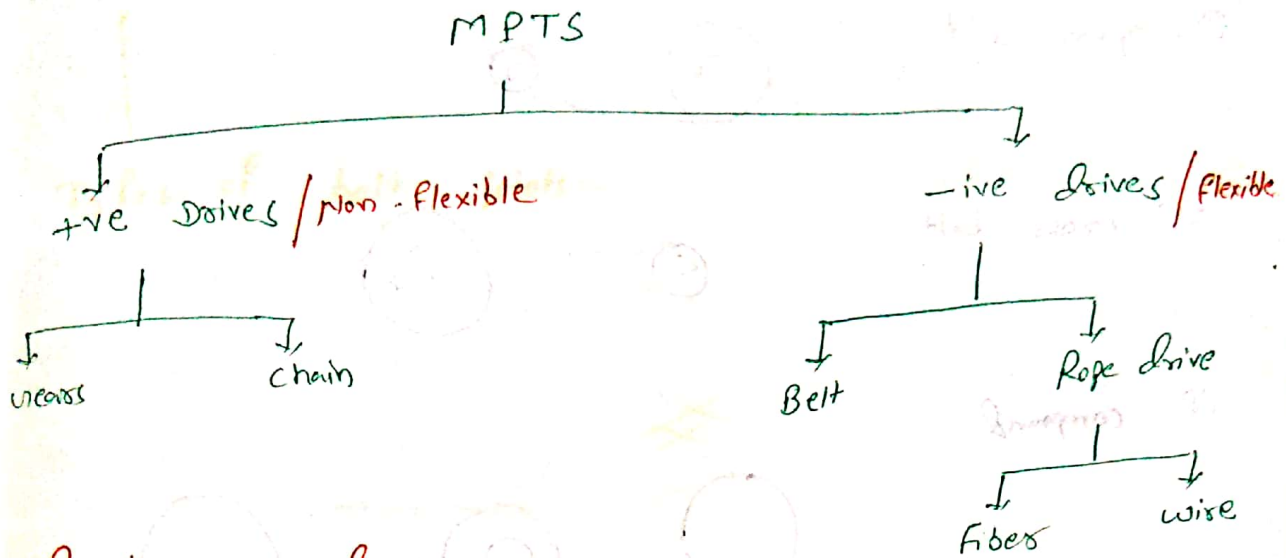 MPTS
+ve Drives / Non-flexible
-ive drives / flexible
Gears
Chain
Belt
Rope drive
Fiber
Wire